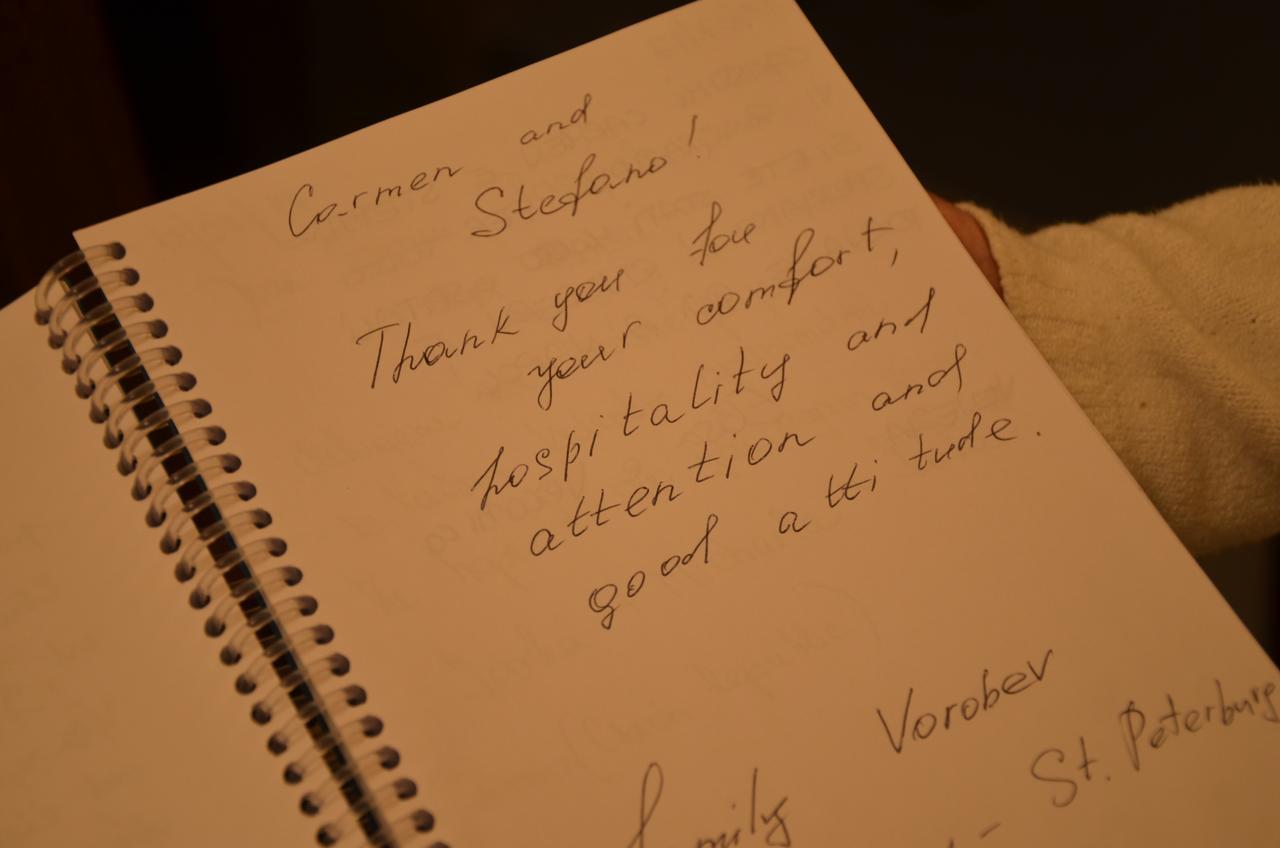 Carmen and
Stefano!
Thank you for
your comfort,
hospitality and
attention and
good attitude.
family Vorobev
- St. Peterburg